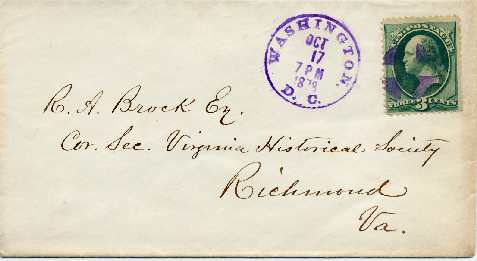 WASHINGTON, D. C.
OCT
17
7 PM
U.S. POSTAGE
THREE 3 CENTS
R. A. Brock Esq.
Cor. Sec. Virginia Historical Society
Richmond
Va.